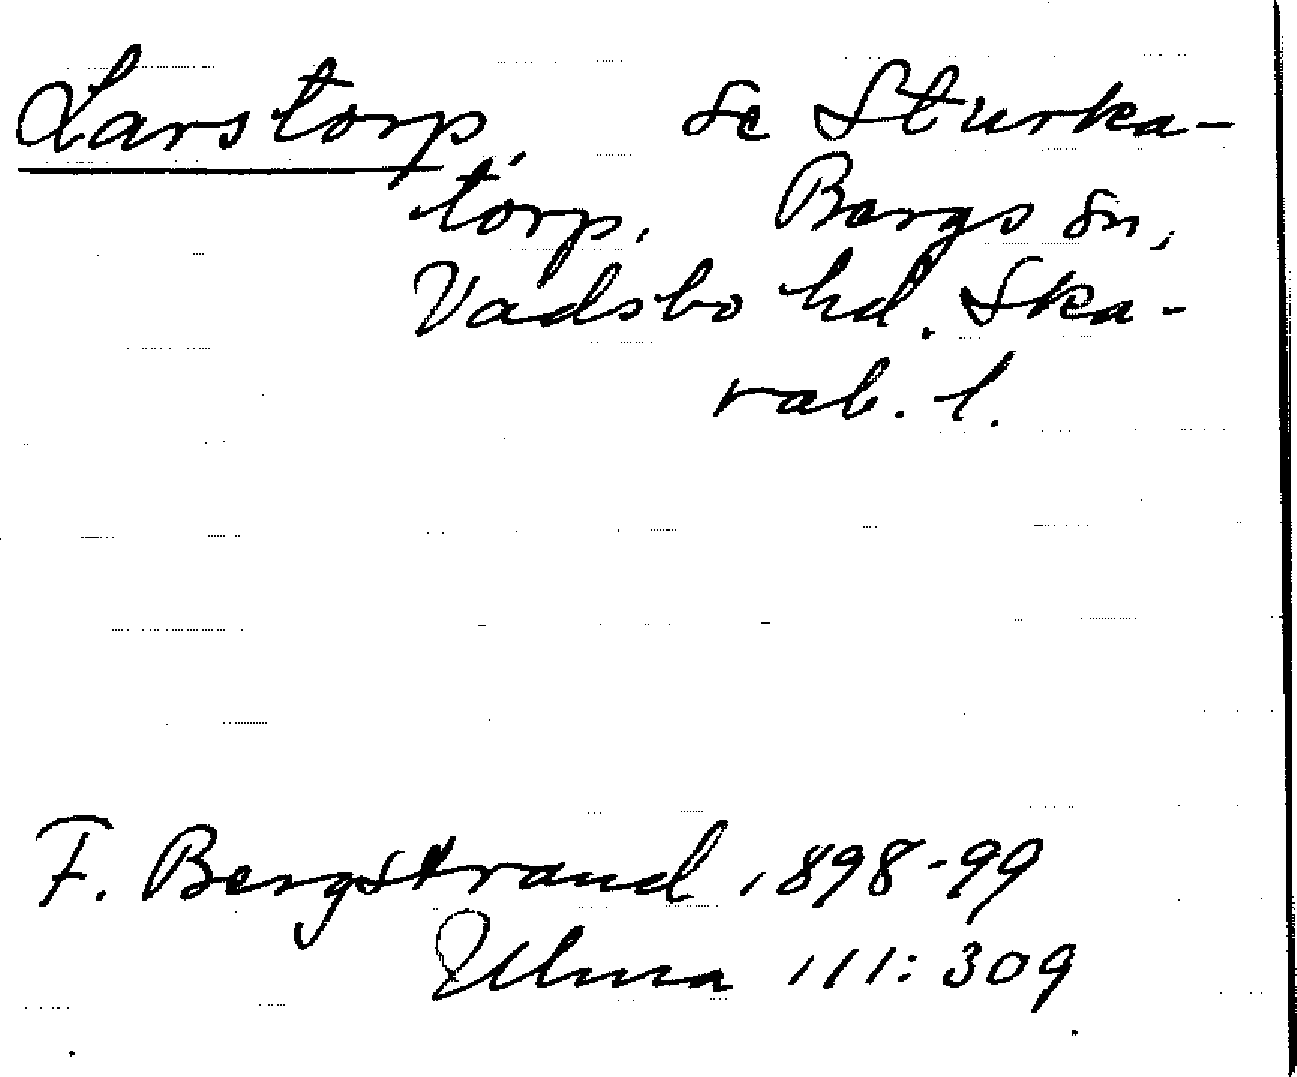 Larstorp, se Sturka-
torp. Bergs sn,
Vadsbo hd. Ska-
rab. l.
F. Bergstrand 1898-99
Ulma 111:309